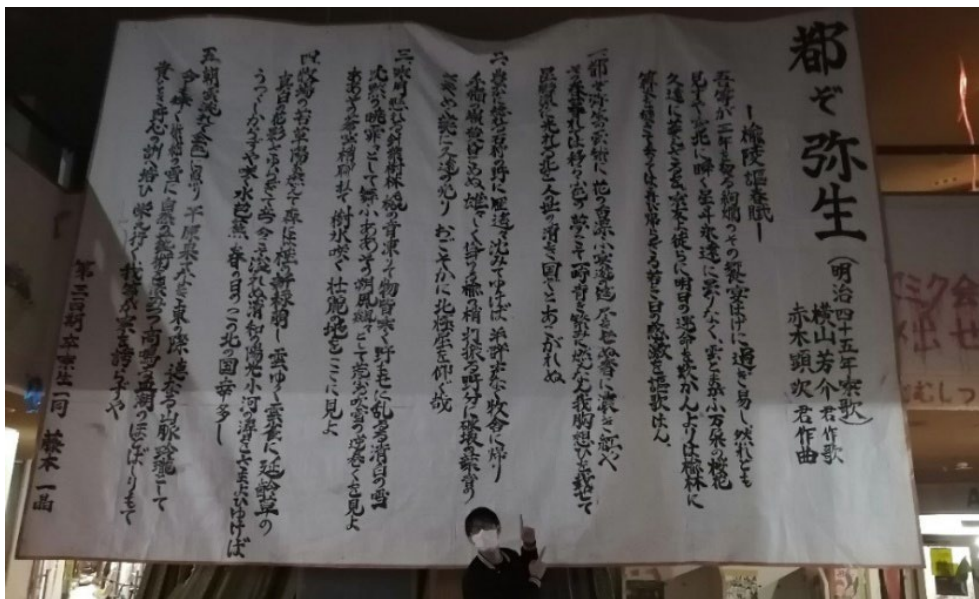 都ぞ弥生(明治四十五年寮歌)
横山芳介君作歌
赤木顕次君作曲
―楡陵謳春賦―
吾等が三年を契る絢爛のその饗宴はげに過ぎ易し。然れども
見ずや穹北に瞬く星斗永遠に曇りなく、雲とまがふ万朶の桜花
久遠に萎えざるを。寮友よ徒らに明日の運命を歎かんよりは楡林に
篝火を焚きて、去りては再び帰らざる若き日の感激を謳歌はん。
一、都ぞ弥生の雲紫に 花の香漂ふ宴遊の筵 尽きせぬ奢に濃き紅や
その春暮れては移ろふ色の 夢こそ一時青き繁みに 燃えなん我胸想ひを載せて
星影冴かに光れる北を 人の世の清き国ぞとあこがれぬ
二、豊かに稔れる石狩の野に 雁遥々沈みてゆけば 羊群声なく牧舎に帰り
手稲の嶺黄昏こめぬ 雄々しく聳ゆる楡の梢 打振る野分に破壊の葉音の
さやめく甍に久遠の光り おごそかに北極星を仰ぐ哉
三、寒月懸れる針葉樹林 橇の音凍りて物皆寒く 野もせに乱るる清白の雪
沈黙の暁霏々として舞ふ ああその朔風飄々として 荒る吹雪の逆巻くを見よ
ああその蒼空梢聯ねて 樹氷咲く壮麗の地をここに見よ
四、牧場の若草陽炎燃えて 森には桂の新緑萌し 雲ゆく雲雀に延齢草の
真白の花影さゆらぎて立つ 今こそ溢れぬ清和の陽光 小河の潯をさまよひゆけば
うつくしからずや咲く水芭蕉 春の日のこの北の国幸多し
五、朝雲流れて金色に照り 平原果てなき東の際 連なる山脈玲瓏として
今しも輝く紫紺の雪に 自然の芸術を懐みつつ 高鳴る血潮のほとばしりもて
貴とき野心の訓へ培ひ 栄え行く 我等が寮を誇らずや
卒寮生一同